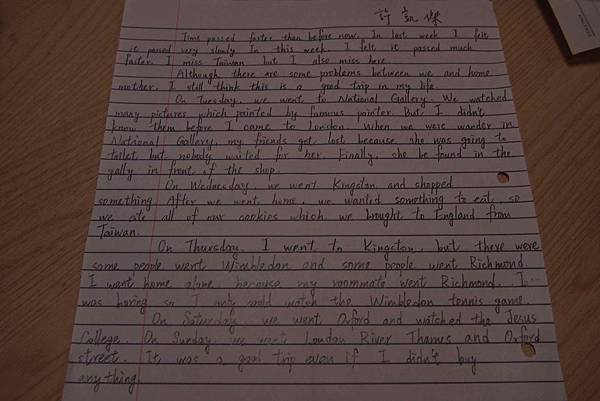 許
Time passed faster than before now. In last week I felt
it passed very slowly. In this week. I felt it passed much
faster. I miss Taiwan but I also miss here.
Although there are some problems between we and home
mother. I still think this is a good trip in my life.
On Tuesday, we went to National Gallery. We watched
many pictures which painted by famous painter. But, I didn't
know them before I came to London. When we were wander in
National Gallery, my friends got lost because she was going to
toilet but nobody waited for her. Finally, she be found in the
gally in front of the shop.
On Wednesday, we went Kingston and shopped
something. After we went home, we wanted something to eat, so
we ate all of our cookies which we brought to England from
Taiwan.
On Thursday, I went to Kingston, but there were
some people went Wimbledon and some people went Richmond.
I went home alone, because my roommate went Richmond. I
was boring so I only could watch the Wimbledon tennis game.
On Saturday, we went Oxford and watched the Jesus
College. On Sunday, we went London River Thames and Oxford
street. It was a good trip even if I didn't buy
anything.